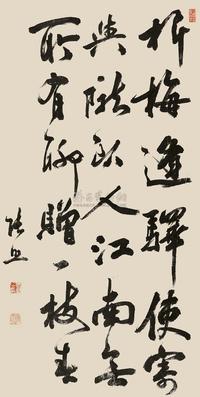 折梅逢驛使寄
與隴頭人江南無
所有聊贈一枝春